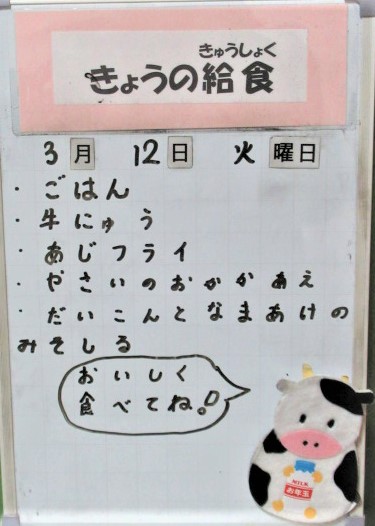 きゅうしょく
きょうの給食
3月 12日 火曜日
・ごはん
・牛にゅう
・あじフライ
・やさいのおかかあえ
・だいこんとなまあげの
みそしる
おいしく
食べてね!
MILK
お年玉